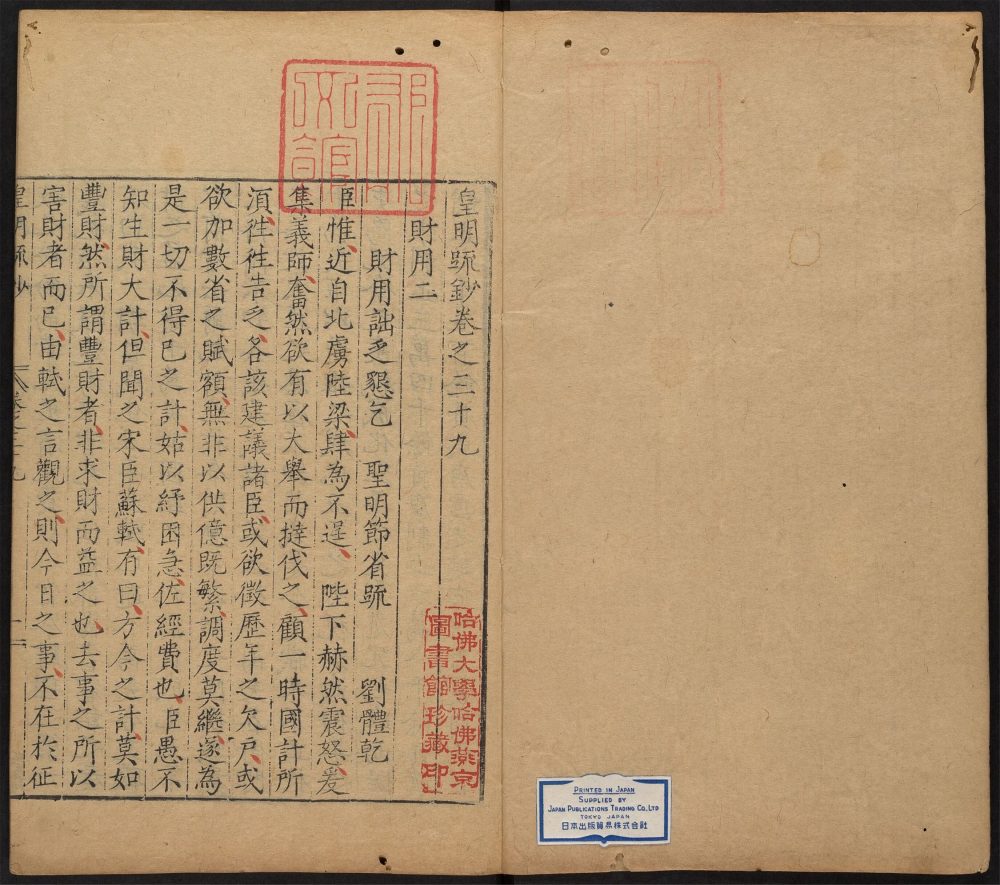 皇明疏鈔卷之三十九
財用二
財用詘乏懇乞 聖明節省疏 劉體乾
臣惟近自北虜陸梁肆為不逞 陛下赫然震怒爰
集義師奮然欲有以大舉而撻伐之顧一時國計所
湏徃徃告乏各該建議諸臣或欲徵歷年之欠戶或
欲加數省之賦額無非以供億既繁調度莫繼遂為
是一切不得已之計姑以紓困急佐經費也臣愚不
知生財大計但聞之宋臣蘇軾有曰方今之計莫如
豐財然所謂豐財者非求財而益之也去事之所以
害財者而已由軾之言觀之則今日之事不在於征
皇明疏鈔 卷之三十九 一
哈佛大學哈佛燕京
圖書館珍藏印
PRINTED IN JAPAN
SUPPLIED BY
JAPAN PUBLICATIONS TRADING CO., LTD
TOKYO JAPAN
日本出版貿易株式会社